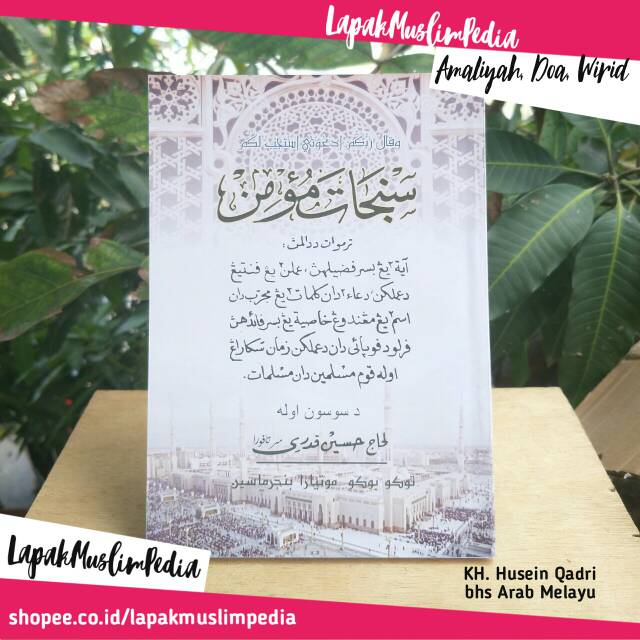 LapakMuslimPedia
Amaliyah, Doa, Wirid
وقال ربكم ادعوني استجب لكم
سنجات مؤمن
ترموات ددالمڽ:
اية٢ يڠ بسر فضيلهڽ، عملن٢ يڠ فنتيڠ
دعملكن، دعاء٢ دان كلمات٢ يڠ مجرب دان
اسم٢ يڠ مڠندوڠ خاصية يڠ بسر فائدهڽ
فرلو دفوپائي دان دعملكن زمان سكارڠ
اوله قوم مسلمين دان مسلمات.
د سوسون اوله
لحاج حسين قدري مرتافورا
توكو بوكو موتيارا بنجرماسين
LapakMuslimPedia
KH. Husein Qadri
bhs Arab Melayu
shopee.co.id/lapakmuslimpedia